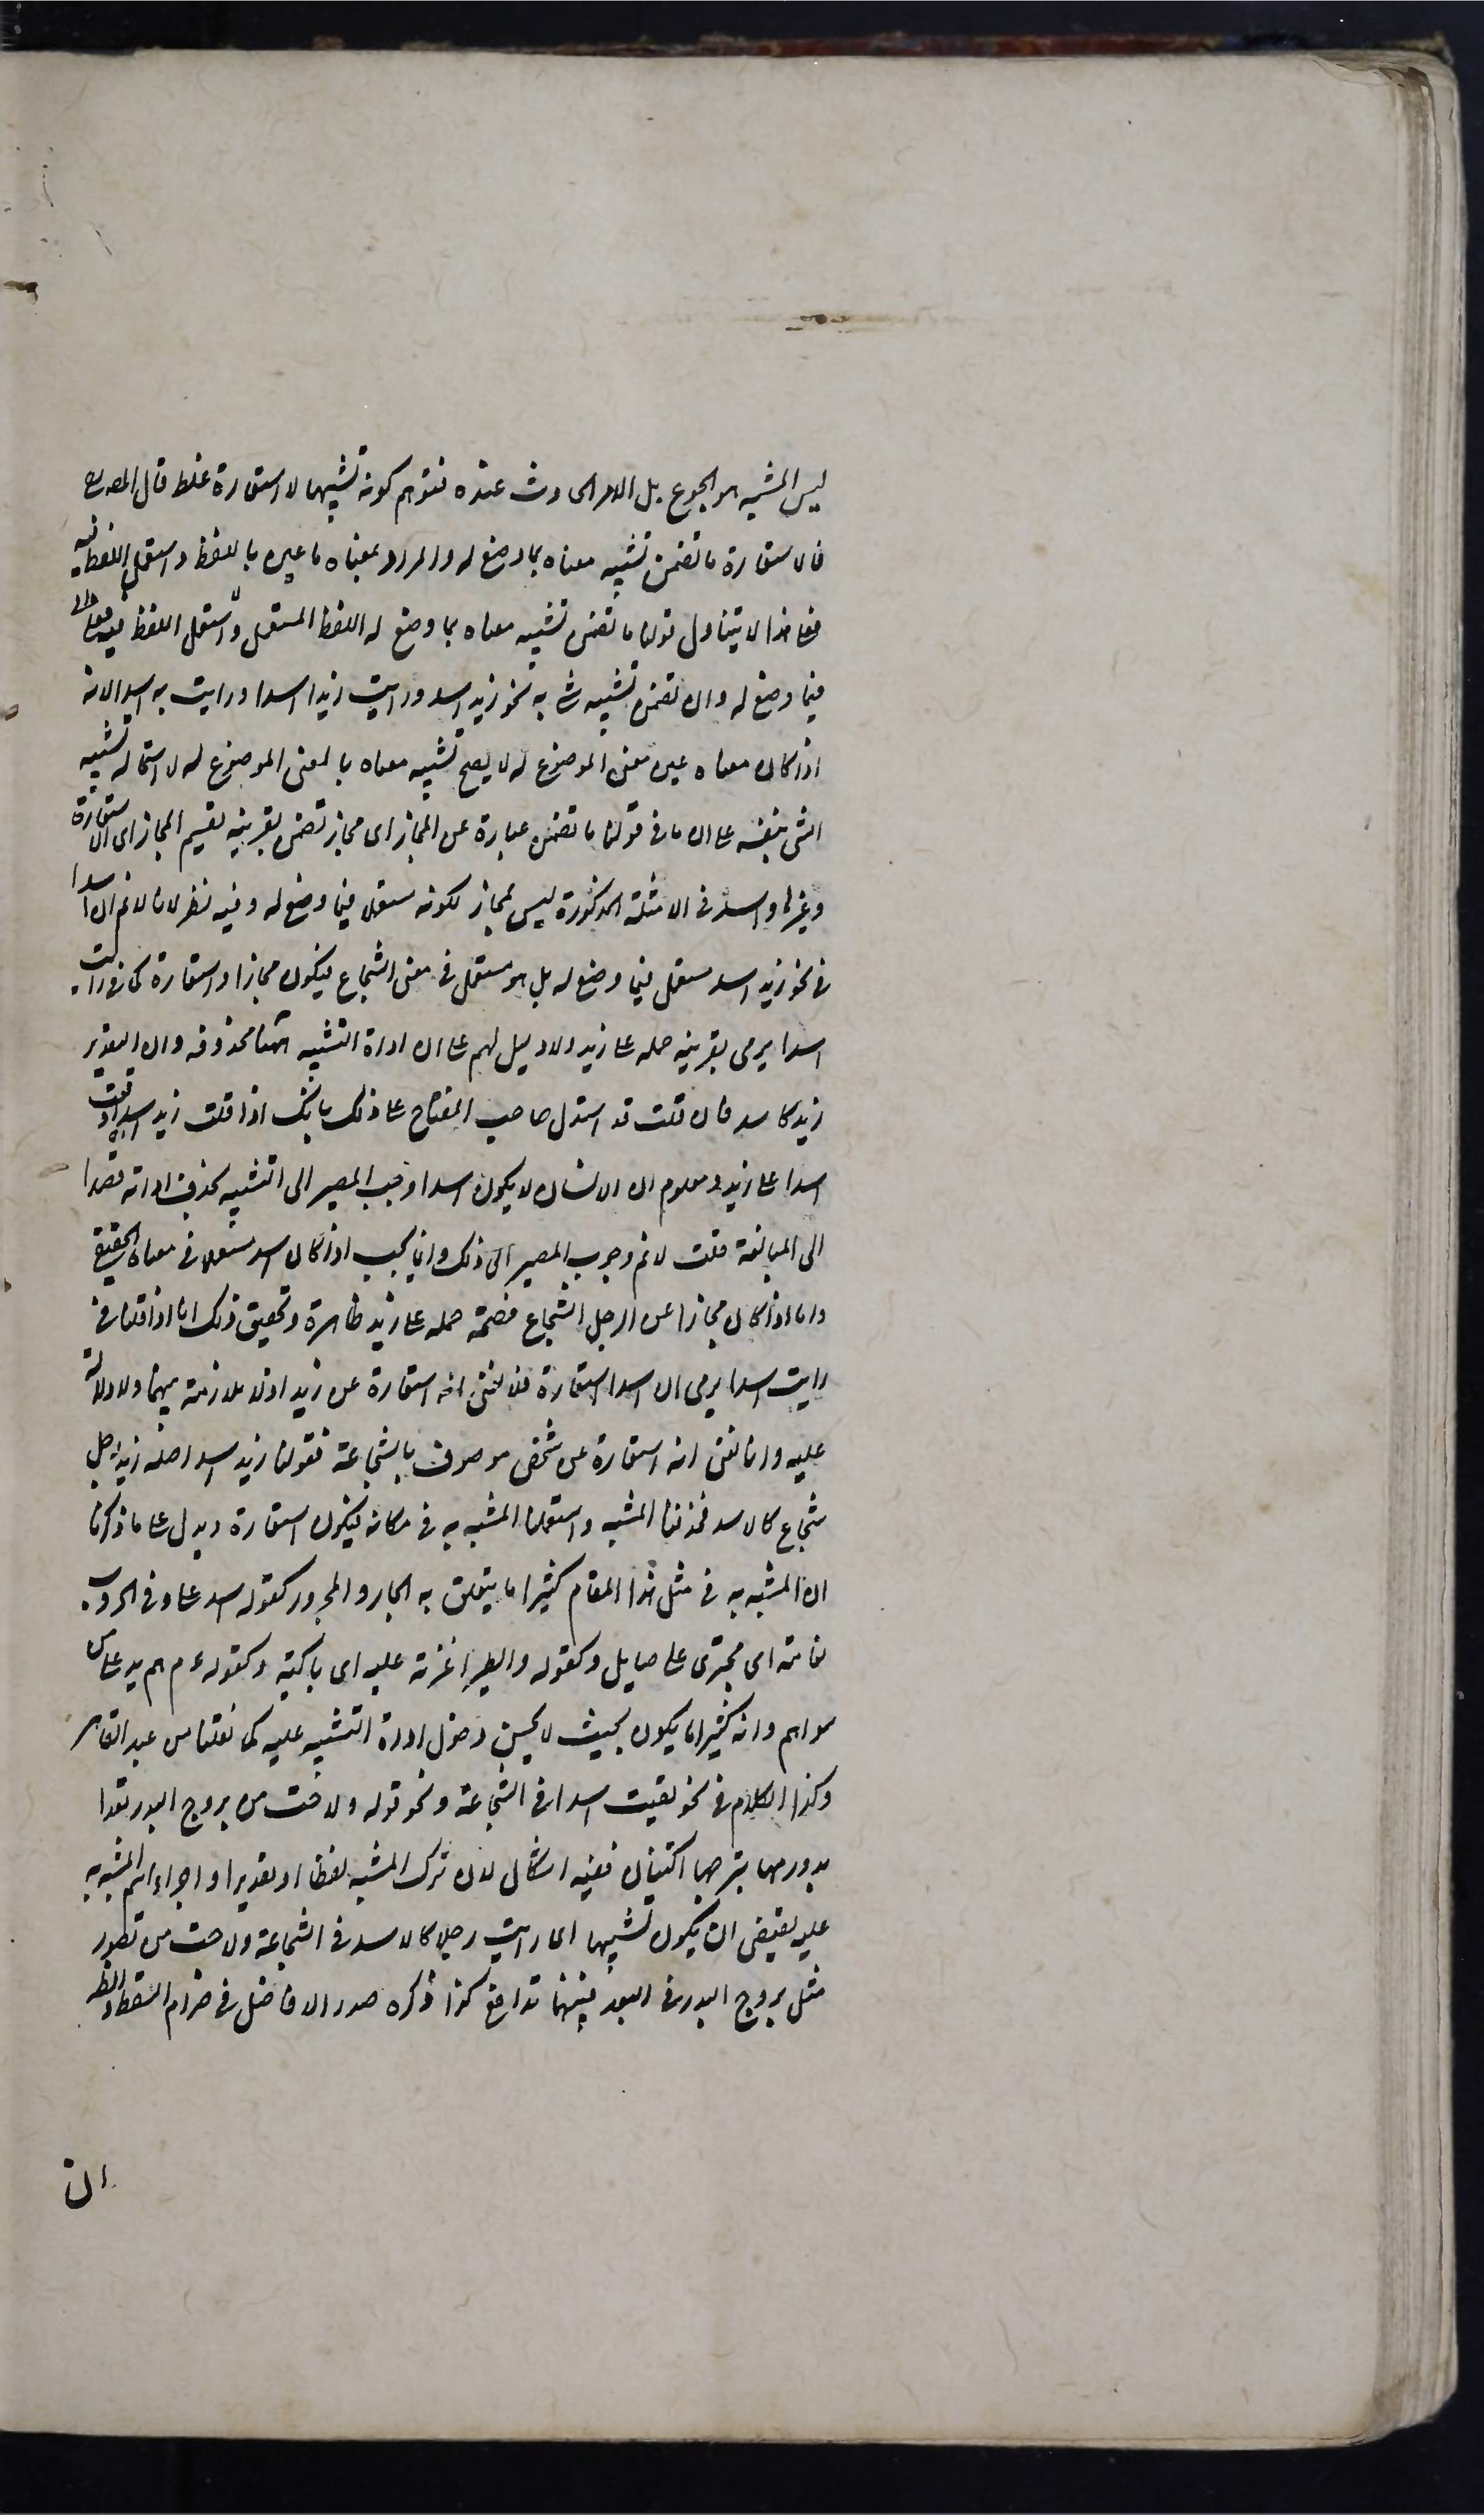 ليس المشبه هو الجوع بل الامر الحادث عنده فتوهم كونه تشبيها لا استعارة غلط قال المص
فالاستعارة ما تضمن تشبيه معناه بما وضع له والمراد بمعناه ما عنى باللفظ واستعمل اللفظ فيه
فعلى هذا لا يتناول قولنا ما تضمن تشبيه معناه بما وضع له اللفظ المستعمل
فيما وضع له وان تضمن تشبيه شئ به نحو زيد اسد ورايت زيدا اسدا ورايت به اسدا لانه
اذا كان معناه عين معنى الموضوع له لا يصح تشبيه معناه بالمعنى الموضوع له لاستحالة تشبيه
الشئ بنفسه على ان ما في قولنا ما تضمن عبارة عن المجاز اى مجاز تضمن بقرينة تقسيم المجاز الى الاستعارة
وغيرها واسد في الامثلة المذكورة ليس بمجاز لكونه مستعملا فيما وضع له وفيه نظر لانا لا نم ان اسدا
في نحو زيد اسد مستعمل فيما وضع له بل هو مستعمل في معنى الشجاع فيكون مجازا واستعارة كما في رايت
اسدا يرمى بقرينة حمله على زيد ولا دليل لهم على ان اداة التشبيه ههنا محذوفة وان التقدير
زيد كاسد فان قلت قد استدل صاحب المفتاح على ذلك بانك اذا قلت زيد اسد اوقعت
اسدا على زيد ومعلوم ان الانسان لا يكون اسدا وجب المصير الى التشبيه بحذف اداته قصدا
الى المبالغة قلت لا نم وجوب المصير الى ذلك وانما يجب اذا كان اسد مستعملا في معناه الحقيقى
واما اذا كان مجازا عن الرجل الشجاع فصحة حمله على زيد ظاهرة وتحقيق ذلك انا اذا قلنا في
رايت اسدا يرمى ان اسدا استعارة فلا نعنى انه استعارة عن زيد اذ لا ملازمة بينهما ولا دلالة
عليه وانما نعنى انه استعارة عن شخص موصوف بالشجاعة فقولنا زيد اسد اصله زيد رجل
شجاع كالاسد فحذفنا المشبه واستعملنا المشبه به في مكانه فيكون استعارة ويدل على ما ذكرنا
ان المشبه به في مثل هذا المقام كثيرا ما يتعلق به الجار والمجرور كقوله اسد على وفي الحروب
نعامة اى مجترئ على صايل وكقوله والطير اغربة عليه اى باكية وكقوله عم هم يد على من
سواهم وانه كثيرا ما يكون بحيث لا يحسن دخول اداة التشبيه عليه كما نقلنا من عبد القاهر
وكذا الكلام في نحو لقيت اسدا في الشجاعة ونحو قوله ولاحت من بروج البدر بعدا
بدور مها تبرجها اكتنان ففيه اشكال لان ترك المشبه لفظا او تقديرا واجراء اسم المشبه به
عليه يقتضى ان يكون تشبيها اى رايت رجلا كالاسد في الشجاعة ولاحت من قصور
مثل بروج البدر في البعد فبينهما تدافع كذا ذكره صدر الافاضل في ضرام السقط والظ
ان